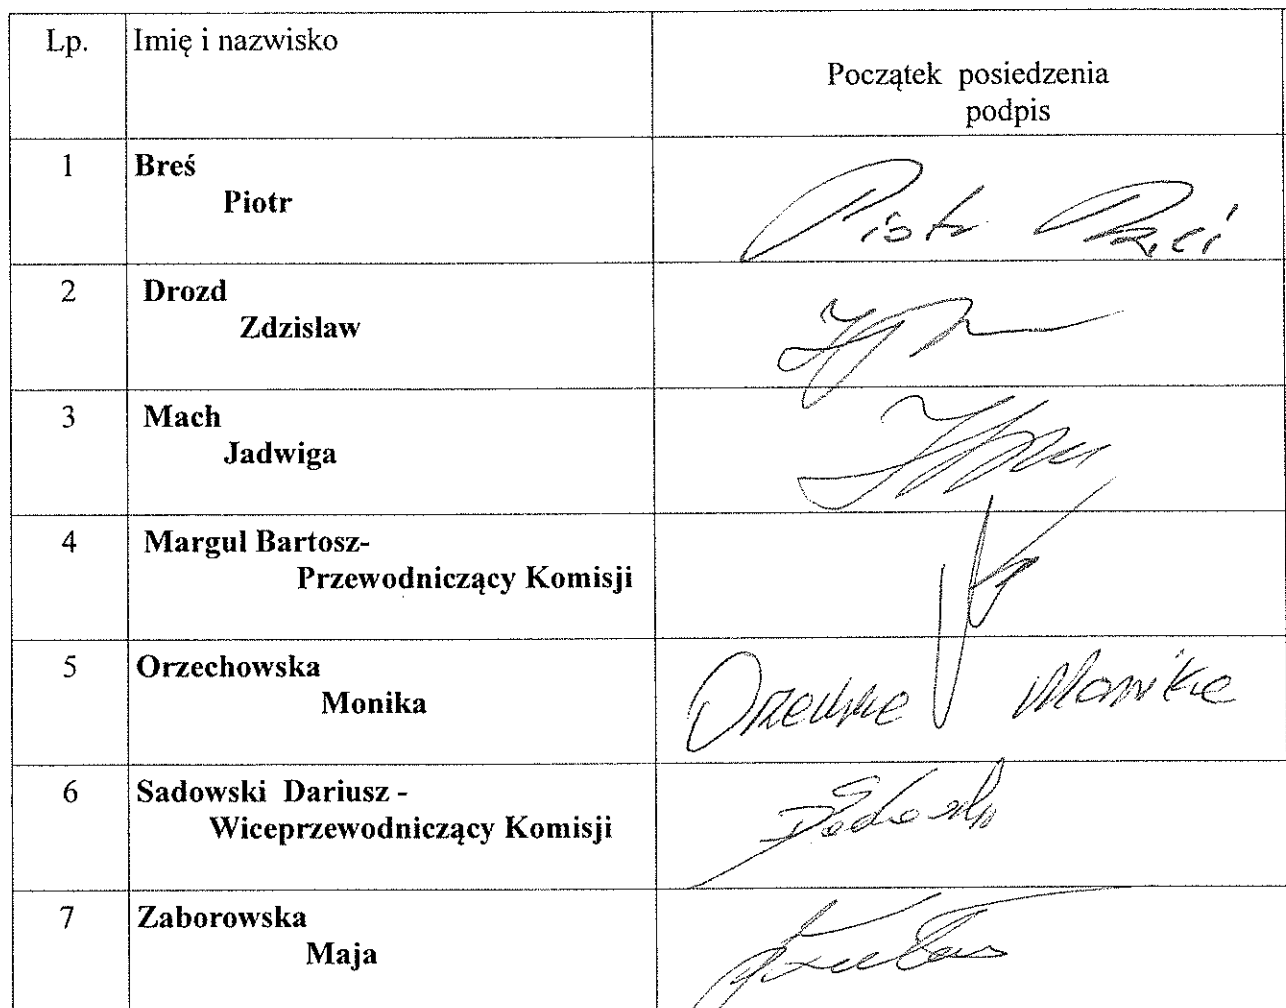 Lp.
Imię i nazwisko
Początek posiedzenia
podpis
1
Breś
Piotr
Piotr
2
Drozd
Zdzisław
3
Mach
Jadwiga
4
Margul Bartosz-
Przewodniczący Komisji
5
Orzechowska
Monika
Monika
6
Sadowski Dariusz -
Wiceprzewodniczący Komisji
7
Zaborowska
Maja